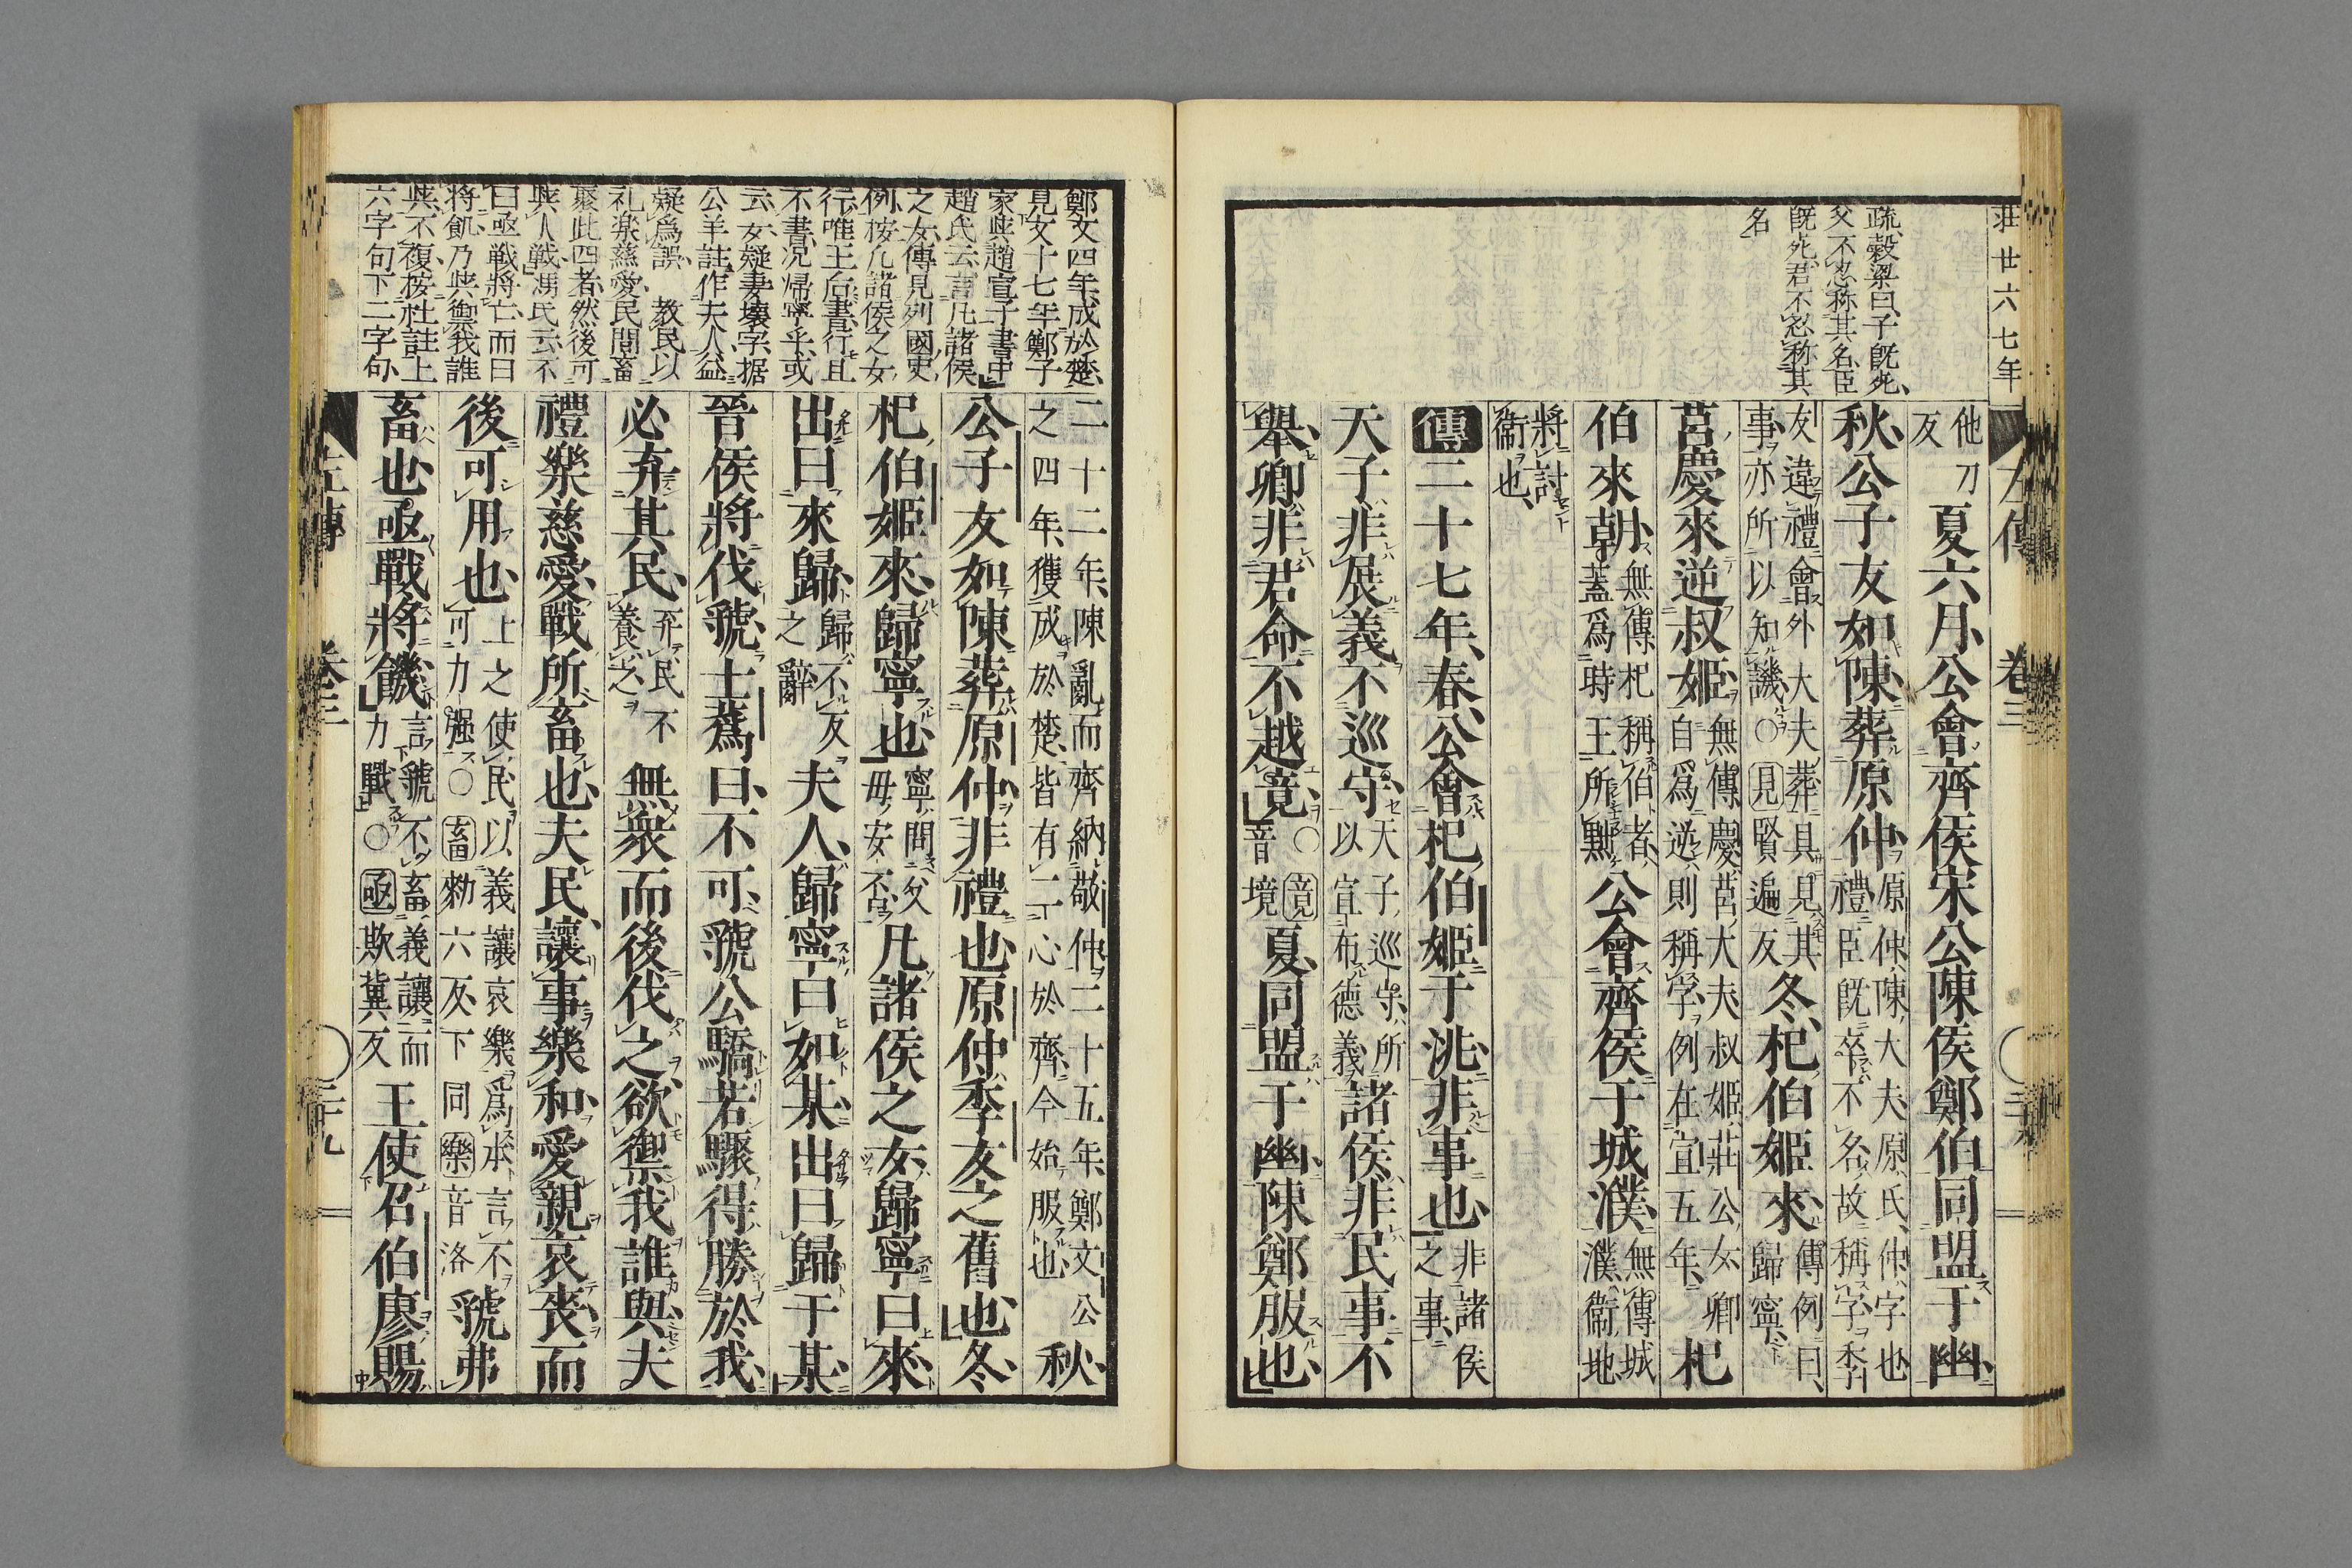 莊廿六七年
疏穀梁曰子既死
父不忍称其名臣
既死君不忍称其
名
左傳 卷三
他刀反夏六月公會齊侯宋公陳侯鄭伯同盟于幽
秋公子友如陳葬原仲原仲陳大夫原氏仲字也禮臣既卒不名故稱字季
友違禮會外大夫葬具見其事亦所以知譏○見賢遍反冬杞伯姬來傳例曰歸寧
莒慶來逆叔姬無傳慶莒大夫叔姬莊公女卿自爲逆則稱字例在宣五年杞
伯來朝無傳杞稱伯者蓋爲時王所黜公會齊侯于城濮無傳城濮衛地
將討衛也
傳二十七年春公會杞伯姬于洮非事也非諸侯之事
天子非展義不巡守天子巡守所以宣布德義諸侯非民事不
舉卿非君命不越竟○竟音境夏同盟于幽陳鄭服也
鄭文四年成於楚
見文十七年鄭子
家與趙宣子書中
趙氏云言凡諸侯
之女傳見列國史
例按凡諸侯之女
行唯王后書行且
不書况帰寧乎或
云女疑妻壊字据
公羊註作夫人益
疑爲誤 教民以
礼楽慈愛民間畜
聚此四者然後可
與人戰馮氏云不
曰亟戰將亡而曰
將飢乃與禦我誰
與不復按杜註上
六字句下二字句
二十二年陳亂而齊納敬仲二十五年鄭文公之四年獲成於楚皆有二心於齊今始服也秋
公子友如陳葬原仲非禮也原仲季友之舊也冬
杞伯姬來歸寧也寧問父母安否凡諸侯之女歸寧曰來
出曰來歸歸不反之辭夫人歸寧曰如某出曰歸于某
晉侯將伐虢士蔿曰不可虢公驕若驟得勝於我
必弃其民弃民不養之無衆而後伐之欲禦我誰與夫
禮樂慈愛戰所畜也夫民讓事樂和愛親哀喪而
後可用也上之使民以義讓哀樂爲本言不可力强○畜勑六反下同樂音洛虢弗
畜也亟戰將饑言虢不畜義讓而力戰○亟欺冀反王使召伯廖賜
左傳 卷三 二十九